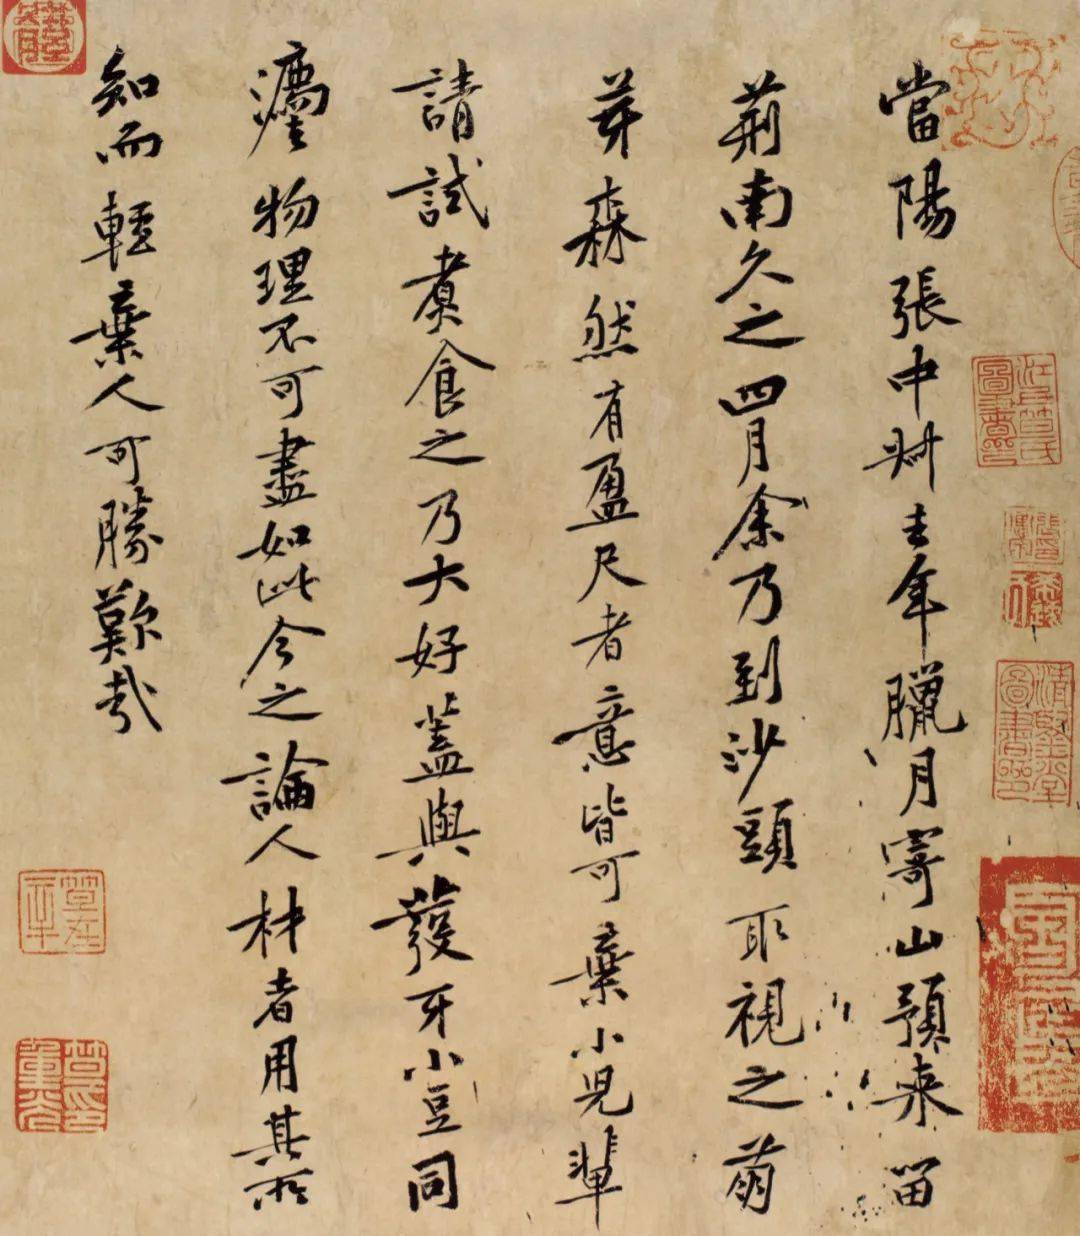 當陽張中叔去年臘月寄山預来留
荆南久之四月余乃到沙頭取視之萌
芽森然有盈尺者意皆可棄小兒輩
請試煑食之乃大好蓋與發牙小豆同
法物理不可盡如此今之論人材者用其所
知而輕棄人可勝歎哉